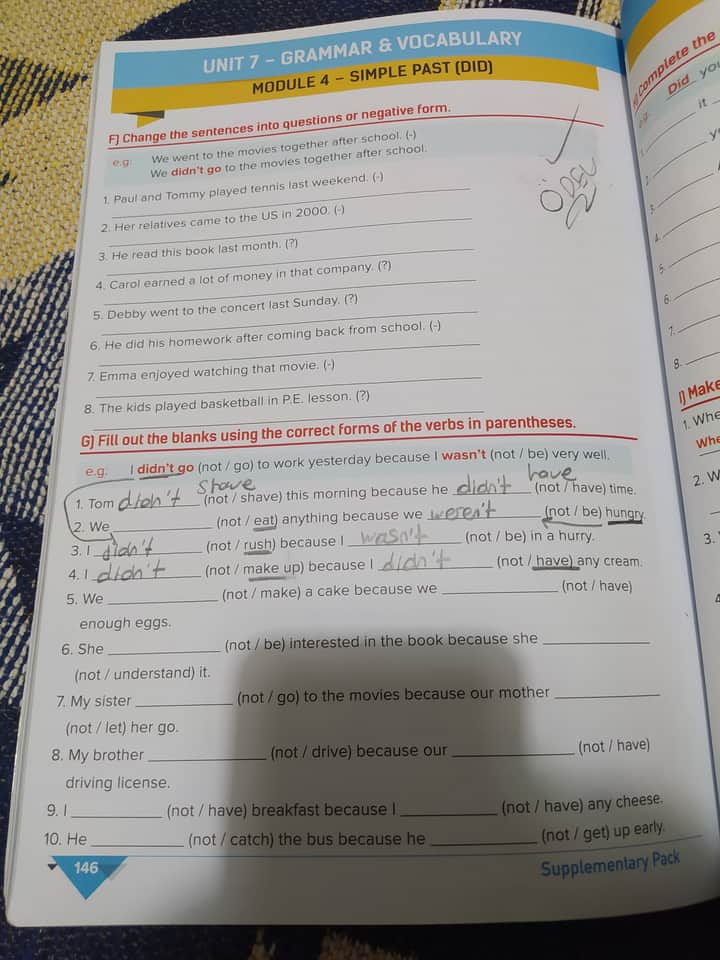 UNIT 7 – GRAMMAR & VOCABULARY
MODULE 4 – SIMPLE PAST (DID)
F) Change the sentences into questions or negative form.
e.g: We went to the movies together after school. (-)
We didn't go to the movies together after school.
1. Paul and Tommy played tennis last weekend. (-)
2. Her relatives came to the US in 2000. (-)
3. He read this book last month. (?)
4. Carol earned a lot of money in that company. (?)
5. Debby went to the concert last Sunday. (?)
6. He did his homework after coming back from school. (-)
7. Emma enjoyed watching that movie. (-)
8. The kids played basketball in P.E. lesson. (?)
G) Fill out the blanks using the correct forms of the verbs in parentheses.
e.g: I didn't go (not / go) to work yesterday because I wasn't (not / be) very well.
shave have
1. Tom didn't (not / shave) this morning because he didn't (not / have) time.
2. We ____________ (not / eat) anything because we weren't (not / be) hungry.
3. I didn't (not / rush) because I wasn't (not / be) in a hurry.
4. I didn't (not / make up) because I didn't (not / have) any cream.
5. We ____________ (not / make) a cake because we ____________ (not / have)
enough eggs.
6. She ____________ (not / be) interested in the book because she ____________
(not / understand) it.
7. My sister ____________ (not / go) to the movies because our mother ____________
(not / let) her go.
8. My brother ____________ (not / drive) because our ____________ (not / have)
driving license.
9. I ____________ (not / have) breakfast because I ____________ (not / have) any cheese.
10. He ____________ (not / catch) the bus because he ____________ (not / get) up early.
146
Supplementary Pack
Complete the
e.g: Did you
it
1.
2.
3.
4.
5.
6.
7.
8.
I) Make
1. Whe
Whe
2. W
3.